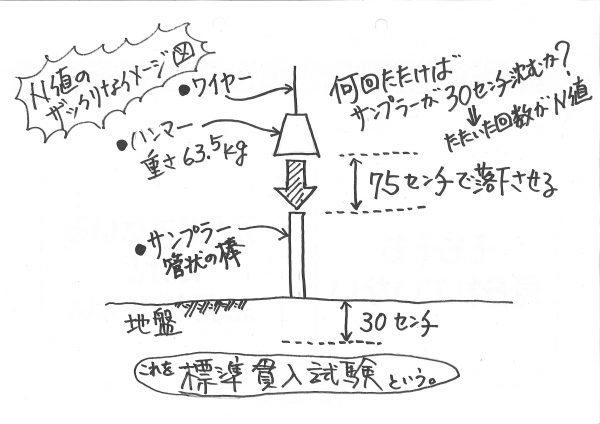 N値の
ざっくりなイメージ図
●ワイヤー
●ハンマー
重さ63.5kg
何回たたけば
サンプラーが30センチ沈むか?
たたいた回数がN値
75センチで落下させる
●サンプラー
管状の棒
地盤
30センチ
これを標準貫入試験という。